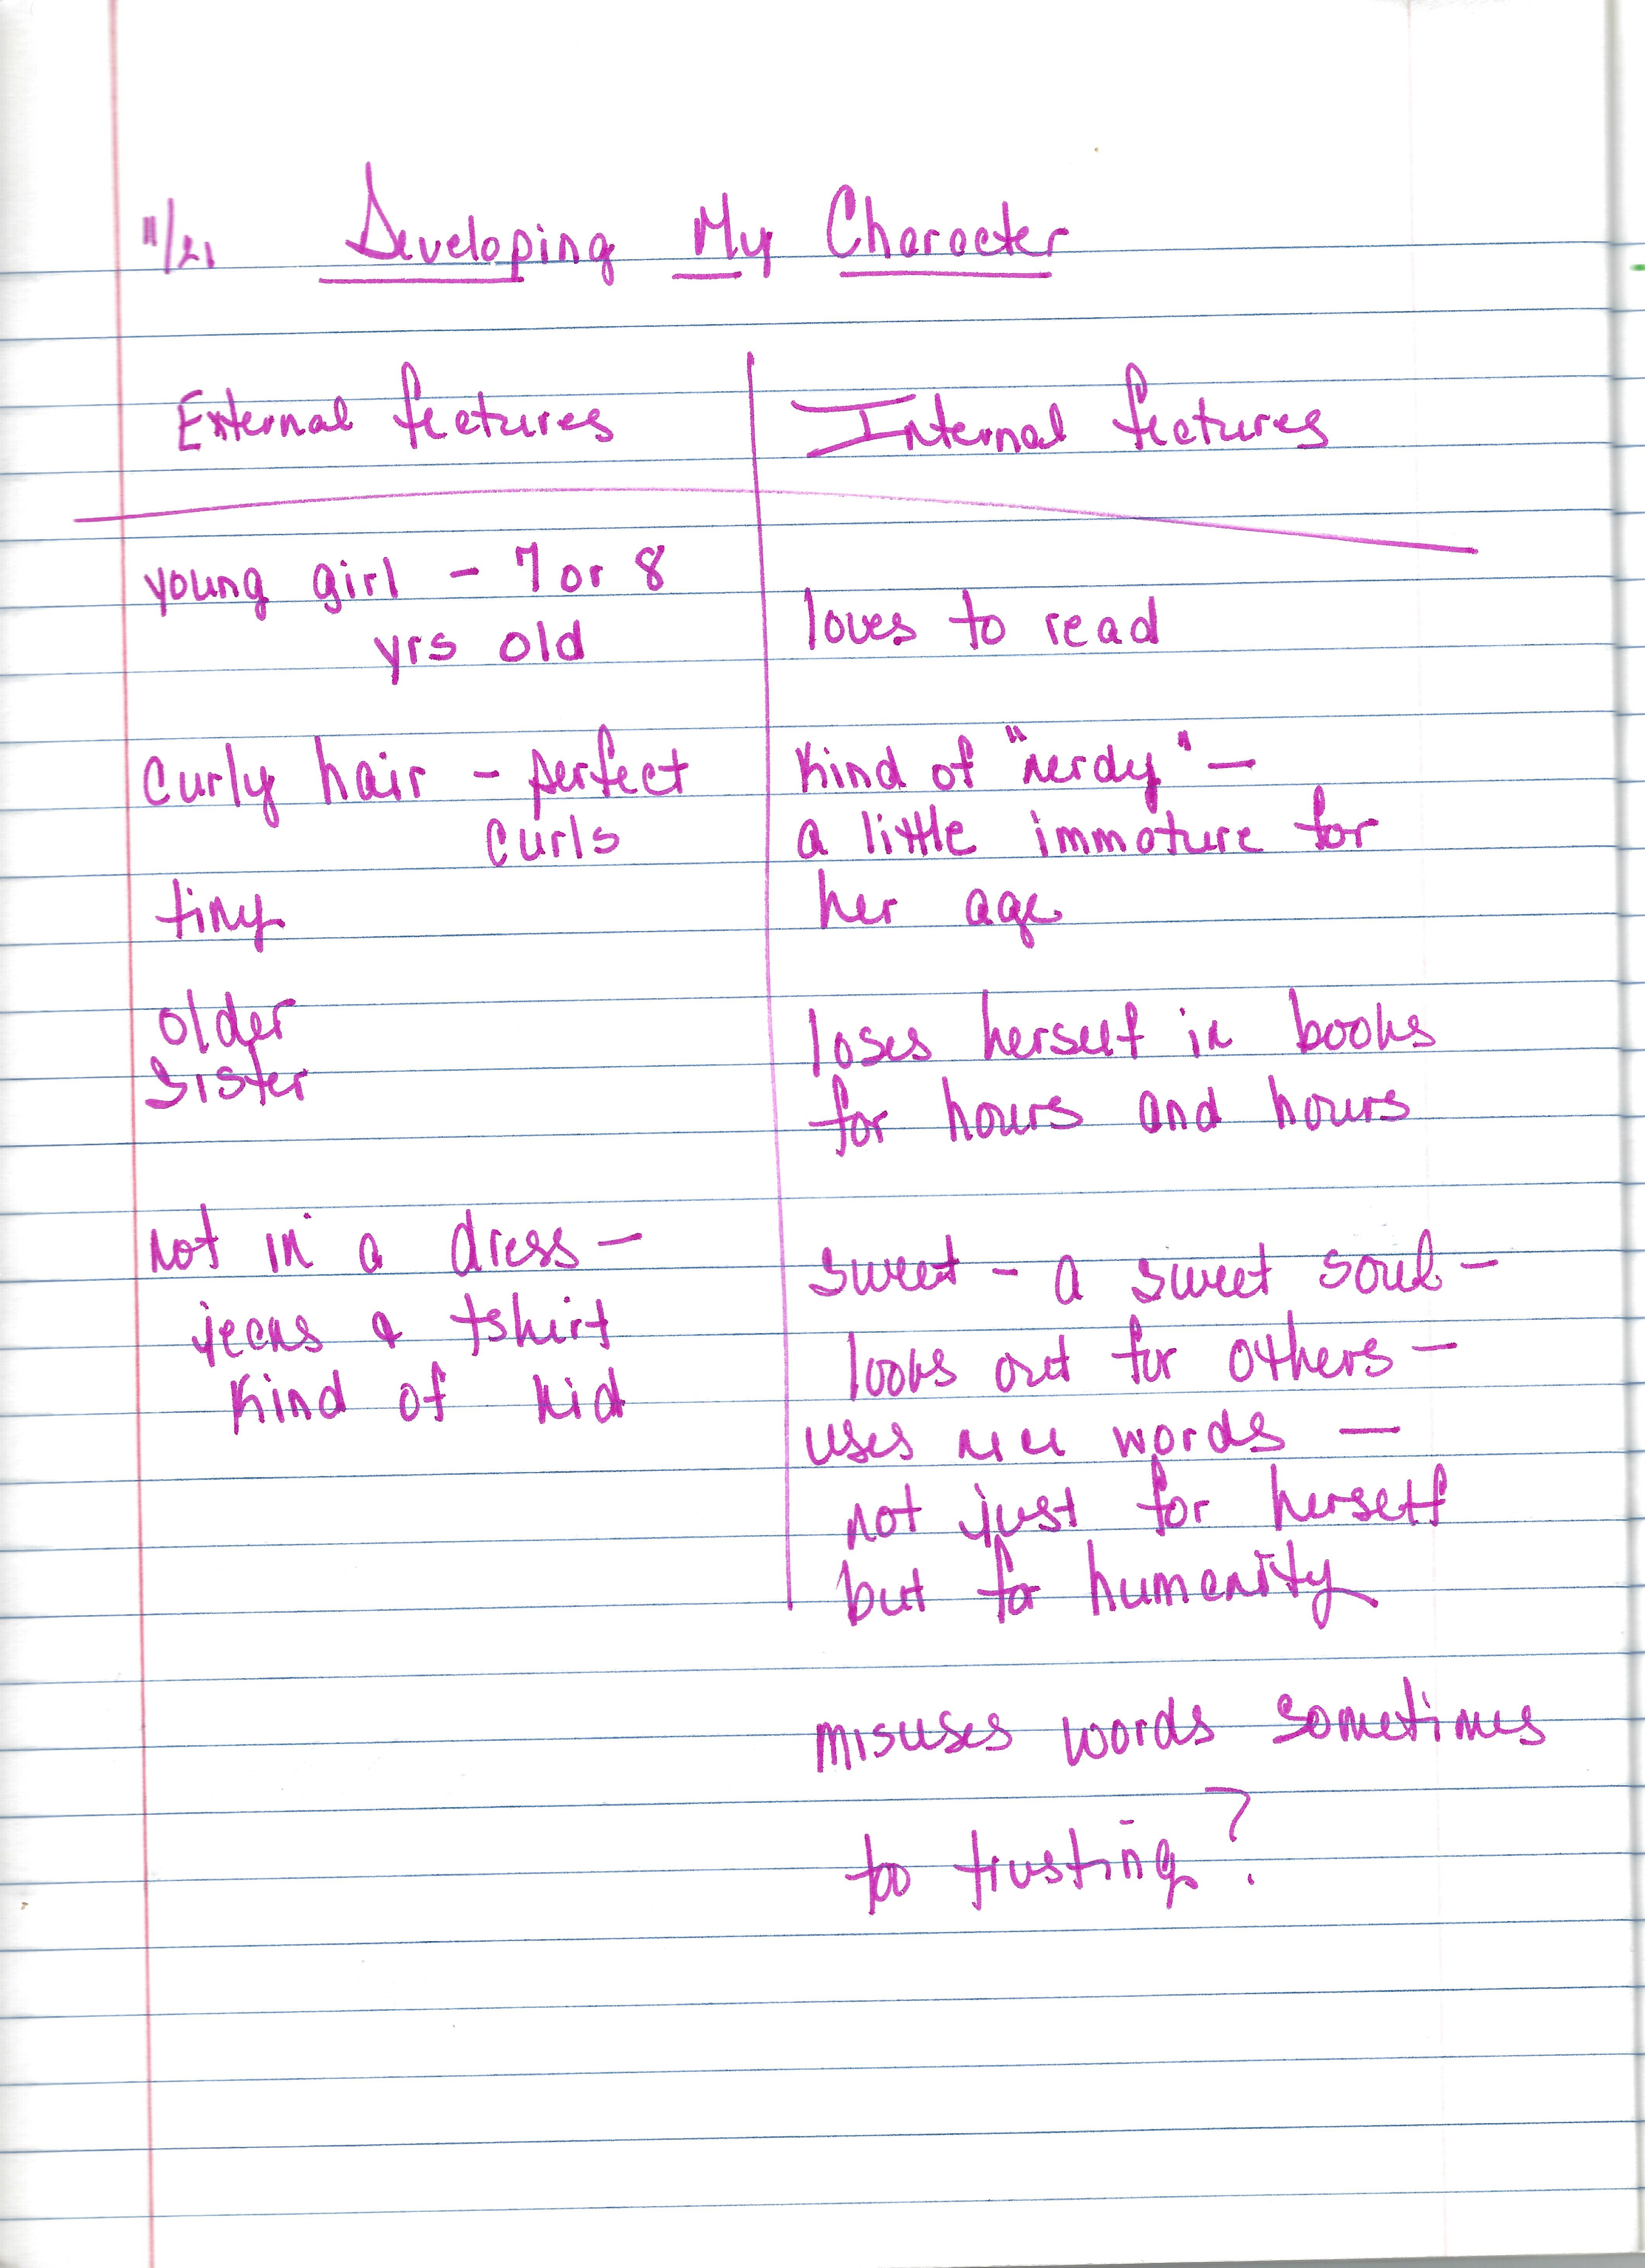 11/21 Developing My Character
External features
young girl - 7 or 8
yrs old
curly hair - perfect
curls
tiny
older
sister
not in a dress -
jeans & tshirt
kind of kid
Internal features
loves to read
kind of "nerdy" -
a little immature for
her age
loses herself in books
for hours and hours
sweet - a sweet soul -
looks out for others -
uses nice words -
not just for herself
but for humanity
misuses words sometimes
too trusting?